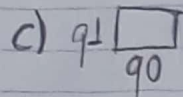 c) 91 □
90